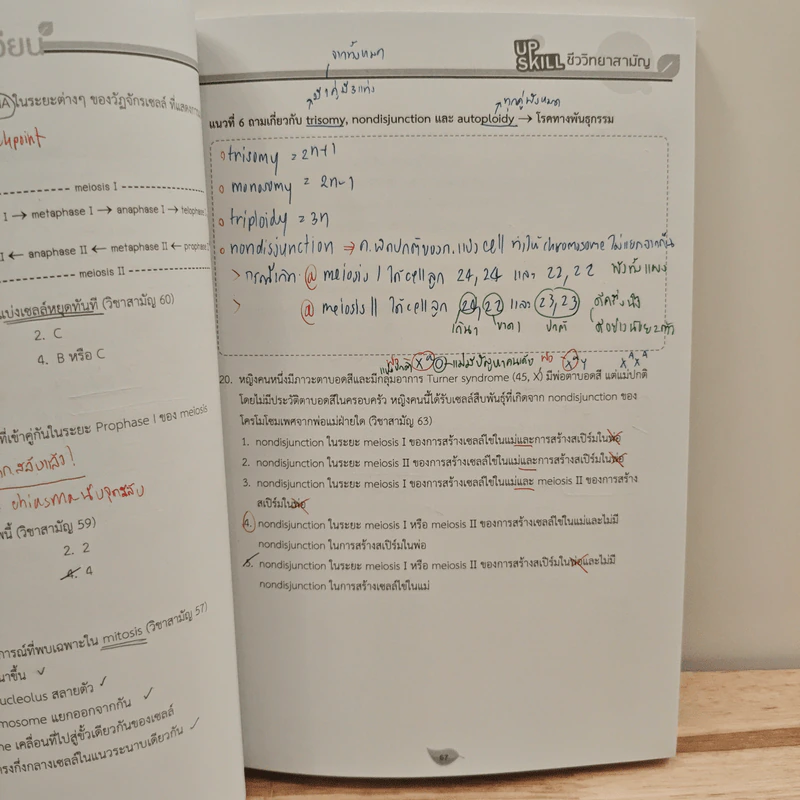 เรียน
A ในระยะต่างๆ ของวัฏจักรเซลล์ ที่แสดง
meiosis I
I → metaphase I → anaphase I → telophase I
I ← anaphase II ← metaphase II ← prophase
meiosis II
แบ่งเซลล์หยุดทันที (วิชาสามัญ 60)
2. C
4. B หรือ C
ที่เข้าคู่กันในระยะ Prophase I ของ meiosis
ก.สลับแล้ว!
(วิชาสามัญ 59)
2. 2
4. 4
การณ์ที่พบเฉพาะใน mitosis (วิชาสามัญ 57)
ucleolus สลายตัว
mosome แยกออกจากกัน
me เคลื่อนที่ไปสู่ขั้วเดียวกันของเซลล์
ตรงกึ่งกลางเซลล์ในแนวระนาบเดียวกัน
UP SKILL ชีววิทยาสามัญ
จากทั้งหมด
มี 1 คู่ มี 3 แท่ง
ทุกคู่ทั้งหมด
แนวที่ 6 ถามเกี่ยวกับ trisomy, nondisjunction และ autoploidy → โรคทางพันธุกรรม
trisomy = 2n+1
monosomy = 2n-1
triploidy = 3n
nondisjunction → ค.ผิดปกติของก.แบ่ง cell ทำให้ chromosome ไม่แยกจากกัน
> กรณีเกิด @ meiosis I ได้ cell ลูก 24,24 และ 22,22 พังทั้งแผง
> @ meiosis II ได้ cell ลูก 24,22 และ 23,23
เกิน 1 ขาด 1 ปกติ
20. หญิงคนหนึ่งมีภาวะตาบอดสีและมีกลุ่มอาการ Turner syndrome (45, X) มีพ่อตาบอดสี แต่แม่ปกติ
โดยไม่มีประวัติตาบอดสีในครอบครัว หญิงคนนี้ได้รับเซลล์สืบพันธุ์ที่เกิดจาก nondisjunction ของ
โครโมโซมเพศจากพ่อแม่ฝ่ายใด (วิชาสามัญ 63)
1. nondisjunction ในระยะ meiosis I ของการสร้างเซลล์ไข่ในแม่และการสร้างสเปิร์มในพ่อ
2. nondisjunction ในระยะ meiosis II ของการสร้างเซลล์ไข่ในแม่และการสร้างสเปิร์มในพ่อ
3. nondisjunction ในระยะ meiosis I ของการสร้างเซลล์ไข่ในแม่และ meiosis II ของการสร้าง
สเปิร์มในพ่อ
4. nondisjunction ในระยะ meiosis I หรือ meiosis II ของการสร้างเซลล์ไข่ในแม่และไม่มี
nondisjunction ในการสร้างสเปิร์มในพ่อ
5. nondisjunction ในระยะ meiosis I หรือ meiosis II ของการสร้างสเปิร์มในพ่อและไม่มี
nondisjunction ในการสร้างเซลล์ไข่ในแม่
67